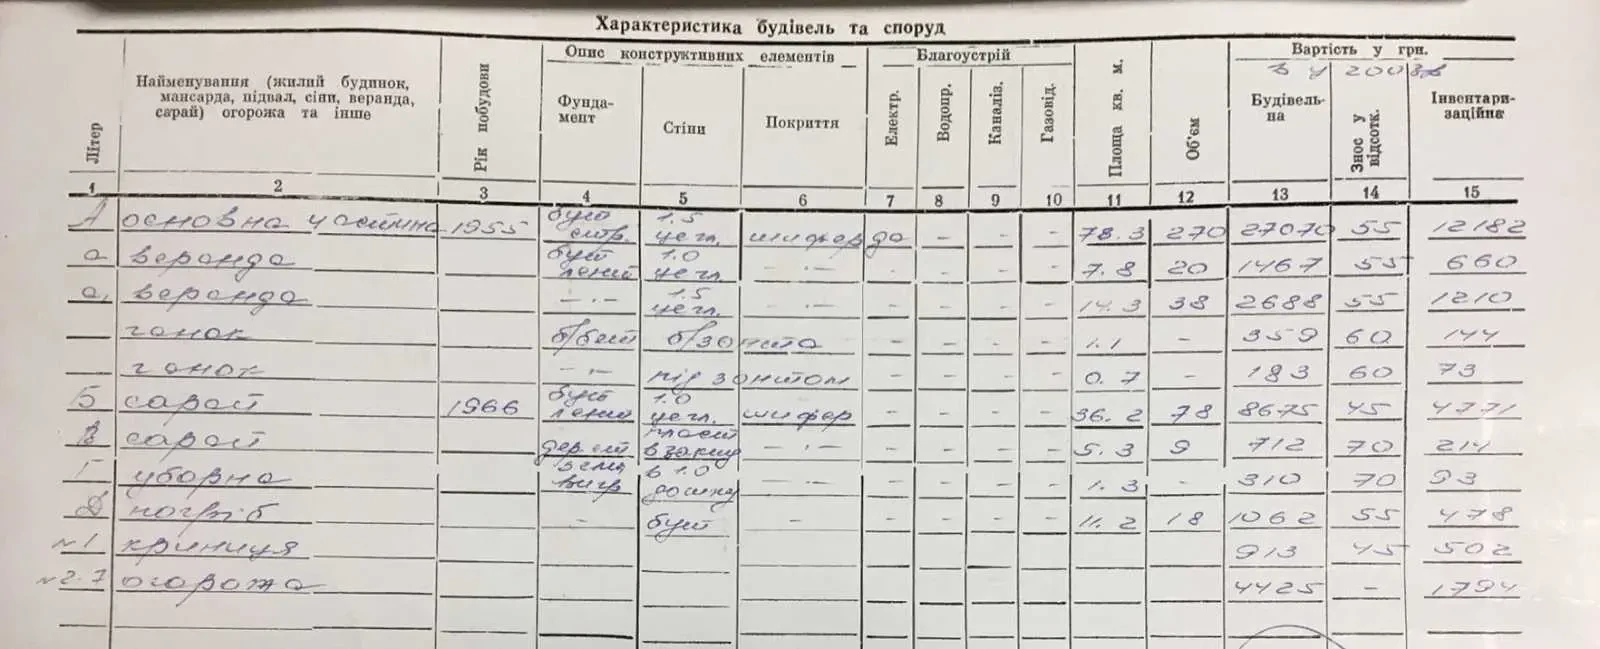 Характеристика будівель та споруд
Літер | Найменування (жилий будинок, мансарда, підвал, сіни, веранда, сарай) огорожа та інше | Рік побудови | Опис конструктивних елементів | Благоустрій | Площа кв. м. | Об'єм | Вартість у грн.
Фунда-мент | Стіни | Покриття | Електр. | Водопр. | Каналіз. | Газовід. | Будівель-на | Знос у відсотк. | Інвентари-заційна
1 2 3 4 5 6 7 8 9 10 11 12 13 14 15
А основна частина 1955 бут стр. 1.5 цегл. шифер да - - - 78.3 270 27070 55 12182
а веранда бут лений 1.0 цегл. -·- - - - - 7.8 20 1467 55 660
а, веранда -·- 1.5 цегл. -·- - - - - 14.3 38 2688 55 1210
ганок б/бет б/зонта - - - - 1.1 - 359 60 144
ганок -·- під зонтом - - - - 0.7 - 183 60 73
Б сарай 1966 бут лений 1.0 цегл. шифер - - - - 36.2 78 8675 45 4771
В сарай -·- - - - - 5.3 9 712 70 214
Г уборна в 1.0 дошку -·- - - - - 1.3 - 310 70 93
Д погріб - бут - - - - - 11.2 18 1062 55 478
№1 криниця 913 45 502
№2-7 огорожа 4425 - 1794